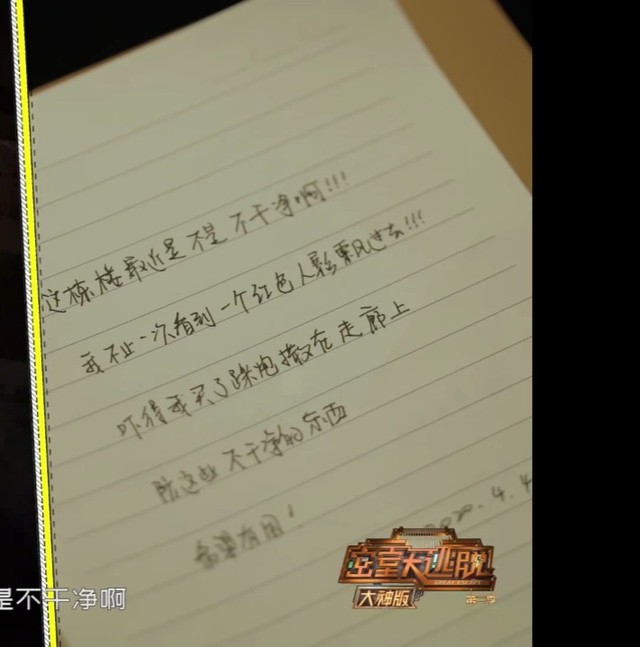 这栋楼最近是不是不干净啊!!!
我不止一次看到一个红色人影乘风过去!!!
吓得我买了踩炮撒在走廊上
防这些不干净的东西
希望有用!
2020.4.4
密室大逃脱
大神版
第一季
是不干净啊